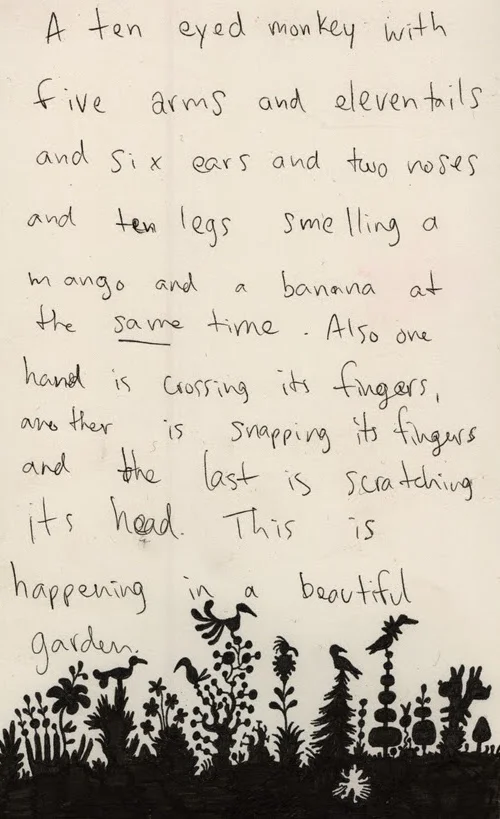 A ten eyed monkey with
five arms and eleven tails
and six ears and two noses
and ten legs smelling a
mango and a banana at
the same time. Also one
hand is crossing its fingers,
another is snapping its fingers
and the last is scratching
its head. This is
happening in a beautiful
garden.